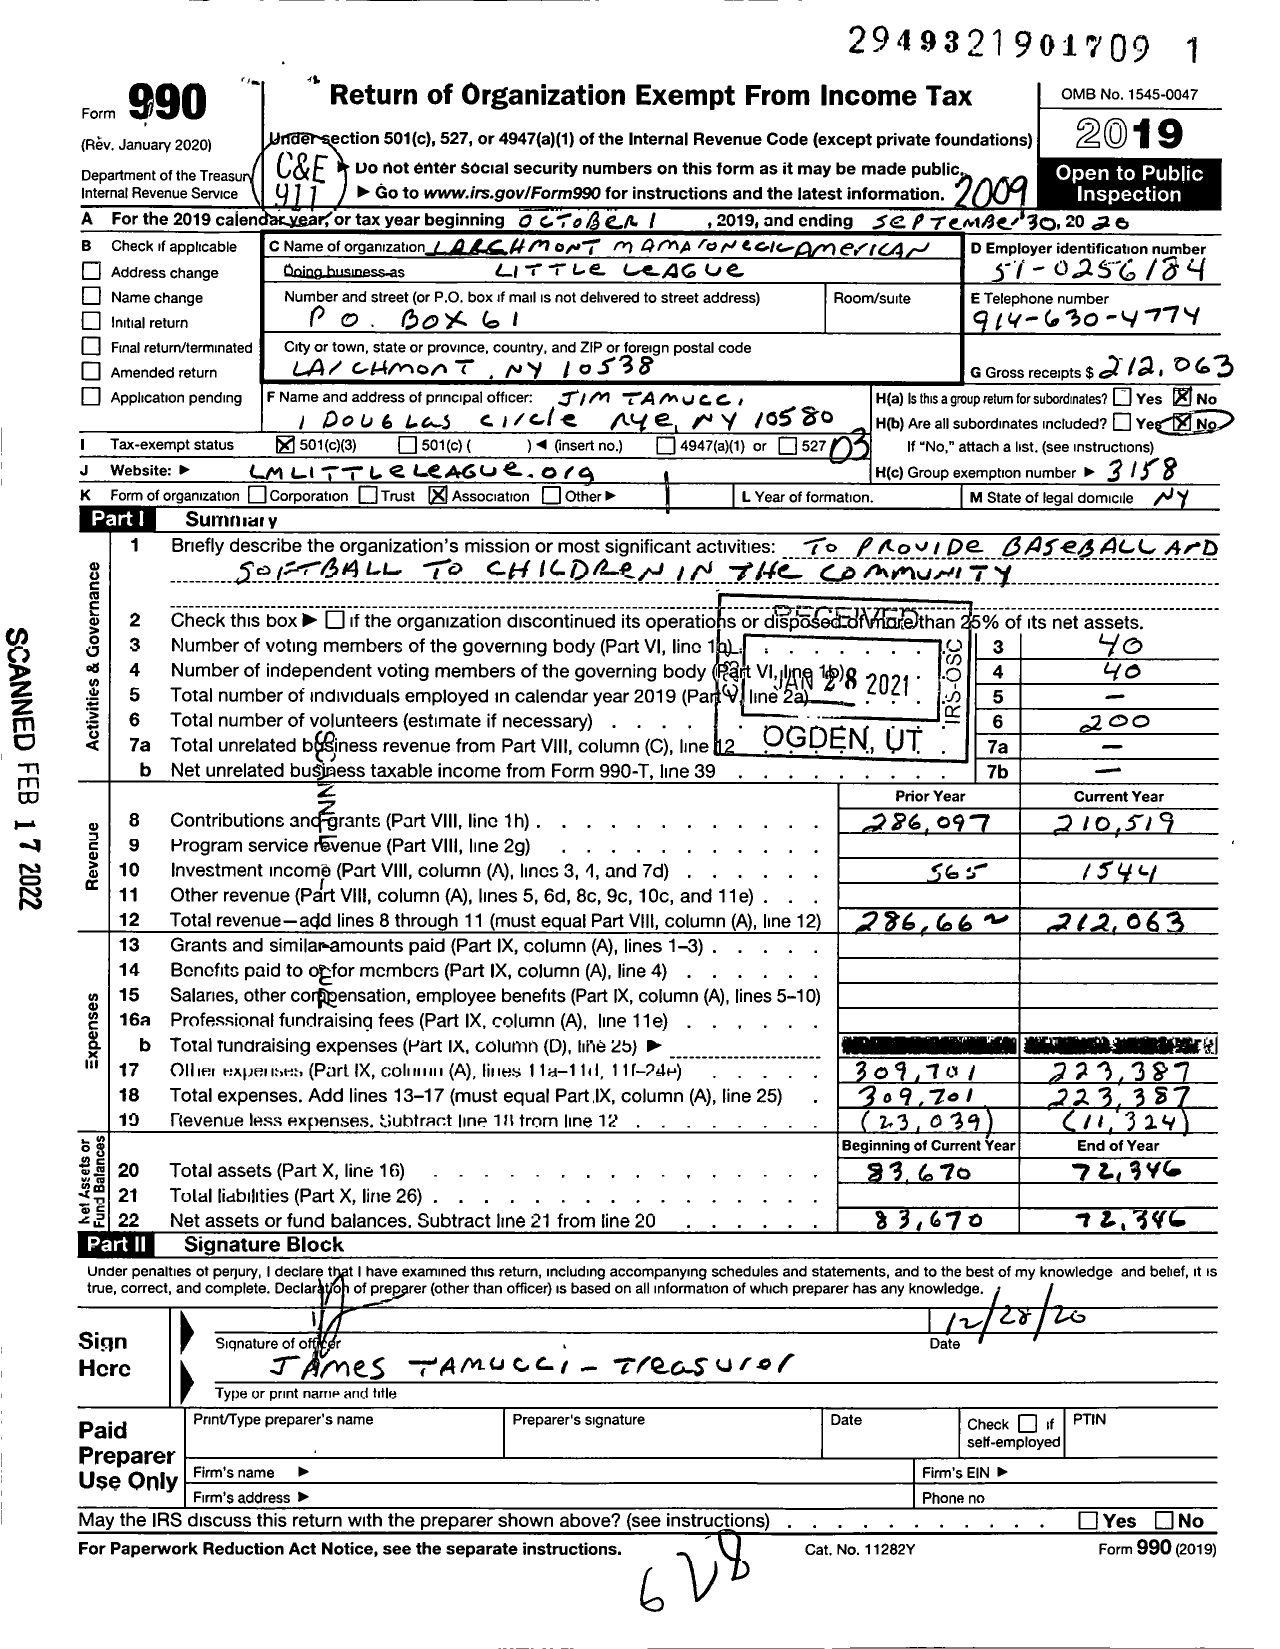 2949321901709 1
Form 990
(Rev. January 2020)
Department of the Treasury
Internal Revenue Service
Return of Organization Exempt From Income Tax
Under section 501(c), 527, or 4947(a)(1) of the Internal Revenue Code (except private foundations)
▶ Do not enter social security numbers on this form as it may be made public.
▶ Go to www.irs.gov/Form990 for instructions and the latest information.
C&E
411
2009
OMB No. 1545-0047
2019
Open to Public
Inspection
A For the 2019 calendar year, or tax year beginning OCTOBER 1 , 2019, and ending SEPTEMBER 30, 20 20
B Check if applicable
Address change
Name change
Initial return
Final return/terminated
Amended return
Application pending
C Name of organization LARCHMONT MAMARONECK AMERICAN
Doing business as LITTLE LEAGUE
Number and street (or P.O. box if mail is not delivered to street address) Room/suite
P O. BOX 61
City or town, state or province, country, and ZIP or foreign postal code
LARCHMONT, NY 10538
D Employer identification number
51-0256184
E Telephone number
914-630-4774
G Gross receipts $ 212,063
F Name and address of principal officer: JIM TAMUCCI
1 DOUGLAS CIRCLE RYE, NY 10580
H(a) Is this a group return for subordinates? Yes X No
H(b) Are all subordinates included? Yes X No
If "No," attach a list. (see instructions)
I Tax-exempt status X 501(c)(3) 501(c) ( ) ◀ (insert no.) 4947(a)(1) or 527 03
J Website: ▶ LMLITTLELEAGUE.ORG
H(c) Group exemption number ▶ 3158
K Form of organization Corporation Trust X Association Other ▶
L Year of formation.
M State of legal domicile NY
Part I Summary
Activities & Governance
1 Briefly describe the organization's mission or most significant activities: TO PROVIDE BASEBALL AND
SOFTBALL TO CHILDREN IN THE COMMUNITY
2 Check this box ▶ if the organization discontinued its operations or disposed of more than 25% of its net assets.
3 Number of voting members of the governing body (Part VI, line 1a) 3 40
4 Number of independent voting members of the governing body (Part VI, line 1b) 4 40
5 Total number of individuals employed in calendar year 2019 (Part V, line 2a) 5 —
6 Total number of volunteers (estimate if necessary) 6 200
7a Total unrelated business revenue from Part VIII, column (C), line 12 7a —
b Net unrelated business taxable income from Form 990-T, line 39 7b —
RECEIVED
JAN 28 2021
IRS-OSC
OGDEN, UT
SCANNED FEB 17 2022
Revenue
Prior Year Current Year
8 Contributions and grants (Part VIII, line 1h) 286,097 210,519
9 Program service revenue (Part VIII, line 2g)
10 Investment income (Part VIII, column (A), lines 3, 4, and 7d) 565 1544
11 Other revenue (Part VIII, column (A), lines 5, 6d, 8c, 9c, 10c, and 11e)
12 Total revenue—add lines 8 through 11 (must equal Part VIII, column (A), line 12) 286,662 212,063
Expenses
13 Grants and similar amounts paid (Part IX, column (A), lines 1–3)
14 Benefits paid to or for members (Part IX, column (A), line 4)
15 Salaries, other compensation, employee benefits (Part IX, column (A), lines 5–10)
16a Professional fundraising fees (Part IX, column (A), line 11e)
b Total fundraising expenses (Part IX, column (D), line 25) ▶
17 Other expenses (Part IX, column (A), lines 11a–11d, 11f–24e) 309,701 223,387
18 Total expenses. Add lines 13–17 (must equal Part IX, column (A), line 25) 309,701 223,387
19 Revenue less expenses. Subtract line 18 from line 12 (23,039) (11,324)
Net Assets or
Fund Balances
Beginning of Current Year End of Year
20 Total assets (Part X, line 16) 83,670 72,346
21 Total liabilities (Part X, line 26)
22 Net assets or fund balances. Subtract line 21 from line 20 83,670 72,346
Part II Signature Block
Under penalties of perjury, I declare that I have examined this return, including accompanying schedules and statements, and to the best of my knowledge and belief, it is
true, correct, and complete. Declaration of preparer (other than officer) is based on all information of which preparer has any knowledge.
Sign
Here
12/28/20
Signature of officer Date
JAMES TAMUCCI - Treasurer
Type or print name and title
Paid
Preparer
Use Only
Print/Type preparer's name Preparer's signature Date Check if self-employed PTIN
Firm's name ▶ Firm's EIN ▶
Firm's address ▶ Phone no
May the IRS discuss this return with the preparer shown above? (see instructions) Yes No
For Paperwork Reduction Act Notice, see the separate instructions. Cat. No. 11282Y Form 990 (2019)
628